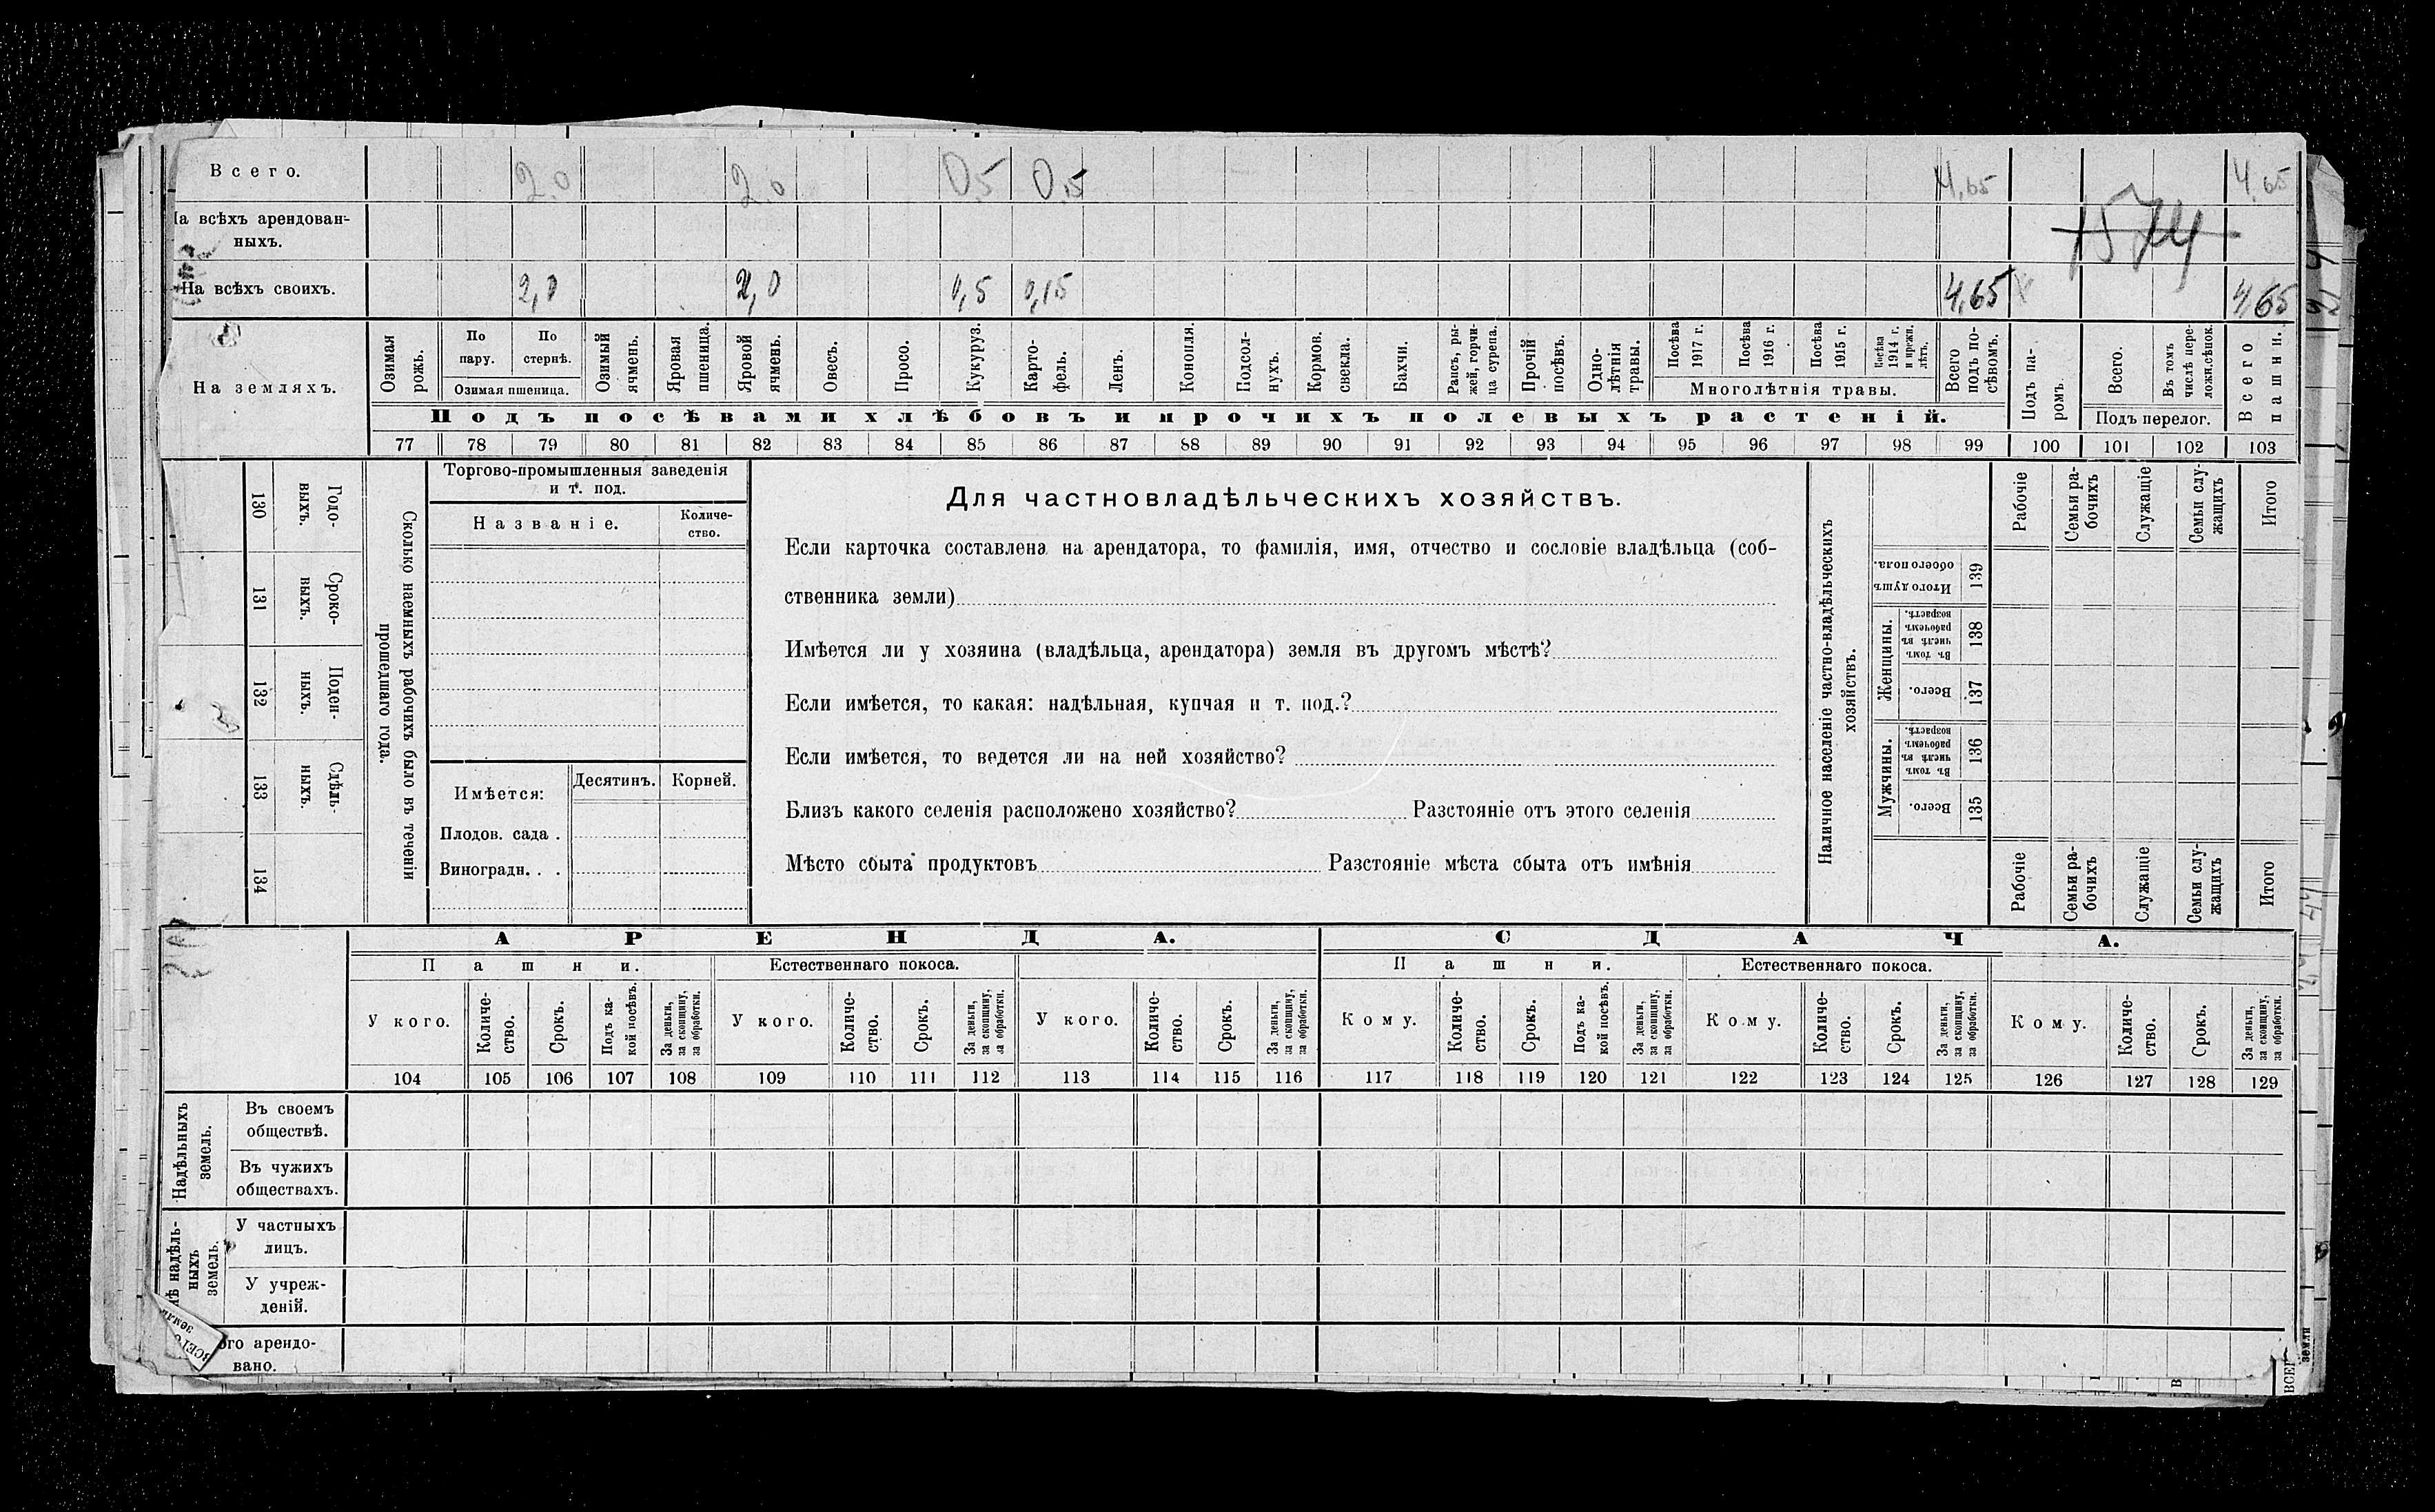 Всего. 2,0 2,0 0,5 0,15 4,65 4,65
На всѣхъ арендован-
ныхъ.
1574
На всѣхъ своихъ. 2,0 2,0 0,5 0,15 4,65 4,65
На земляхъ.
Озимая рожь.
По пару.
По стернѣ.
Озимая пшеница.
Озимый ячмень.
Яровая пшеница.
Яровой ячмень.
Овесъ.
Просо.
Кукуруз.
Карто-
фель.
Ленъ.
Конопля.
Подсол-
нухъ.
Кормов. свекла.
Бахчи.
Рапсъ, ры-
жей, горчи-
ца сурепа.
Прочій посѣвъ.
Одно-
лѣтнія травы.
Посѣва 1917 г.
Посѣва 1916 г.
Посѣва 1915 г.
Посѣва 1914 г. и прежн. лѣтъ.
Многолѣтнія травы.
Всего подъ по-
сѣвомъ.
Подъ па-
ромъ.
Всего.
Въ томъ числѣ пере-
ложн. сѣнок.
Подъ перелог.
Всего пашни.
Подъ посѣвами хлѣбовъ и прочихъ полевыхъ растеній.
77 78 79 80 81 82 83 84 85 86 87 88 89 90 91 92 93 94 95 96 97 98 99 100 101 102 103
130 Годо-
выхъ.
131 Сроко-
выхъ.
132 Поден-
ныхъ.
133 Сдѣль-
ныхъ.
134
Сколько наемныхъ рабочихъ было въ теченіи
прошедшаго года.
Торгово-промышленныя заведенія
и т. под.
Названіе.
Количе-
ство.
Имѣется:
Десятинъ. Корней.
Плодов. сада .
Виноградн. . .
Для частновладѣльческихъ хозяйствъ.
Если карточка составлена на арендатора, то фамилія, имя, отчество и сословіе владѣльца (соб-
ственника земли)
Имѣется ли у хозяина (владѣльца, арендатора) земля въ другомъ мѣстѣ?
Если имѣется, то какая: надѣльная, купчая и т. под.?
Если имѣется, то ведется ли на ней хозяйство?
Близъ какого селенія расположено хозяйство? Разстояніе отъ этого селенія
Мѣсто сбыта продуктовъ Разстояніе мѣста сбыта отъ имѣнія
Наличное населеніе частно-владѣльческихъ
хозяйствъ.
Рабочіе
Семьи ра-
бочихъ
Служащіе
Семьи слу-
жащихъ
Итого
Итого душъ обоего пола. 139
Женщины.
Въ томъ числѣ въ рабочемъ возрастѣ. 138
Всего. 137
Мужчины.
Въ томъ числѣ въ рабочемъ возрастѣ. 136
Всего. 135
Рабочіе
Семьи ра-
бочихъ
Служащіе
Семьи слу-
жащихъ
Итого
АРЕНДА. СДАЧА.
Пашни. Естественнаго покоса. Пашни. Естественнаго покоса.
У кого.
Количе-
ство.
Срокъ.
Подъ ка-
кой посѣвъ.
За деньги, за скопщину, за обработки.
У кого.
Количе-
ство.
Срокъ.
За деньги, за скопщину, за обработки.
У кого.
Количе-
ство.
Срокъ.
За деньги, за скопщину, за обработки.
Кому.
Количе-
ство.
Срокъ.
Подъ ка-
кой посѣвъ.
За деньги, за скопщину, за обработки.
Кому.
Количе-
ство.
Срокъ.
За деньги, за скопщину, за обработки.
Кому.
Количе-
ство.
Срокъ.
За деньги, за скопщину, за обработки.
104 105 106 107 108 109 110 111 112 113 114 115 116 117 118 119 120 121 122 123 124 125 126 127 128 129
Надѣльныхъ земель.
Въ своемъ
обществѣ.
Въ чужихъ
обществахъ.
надѣль-
ныхъ земель.
У частныхъ
лицъ.
У учреж-
деній.
арендо-
вано.